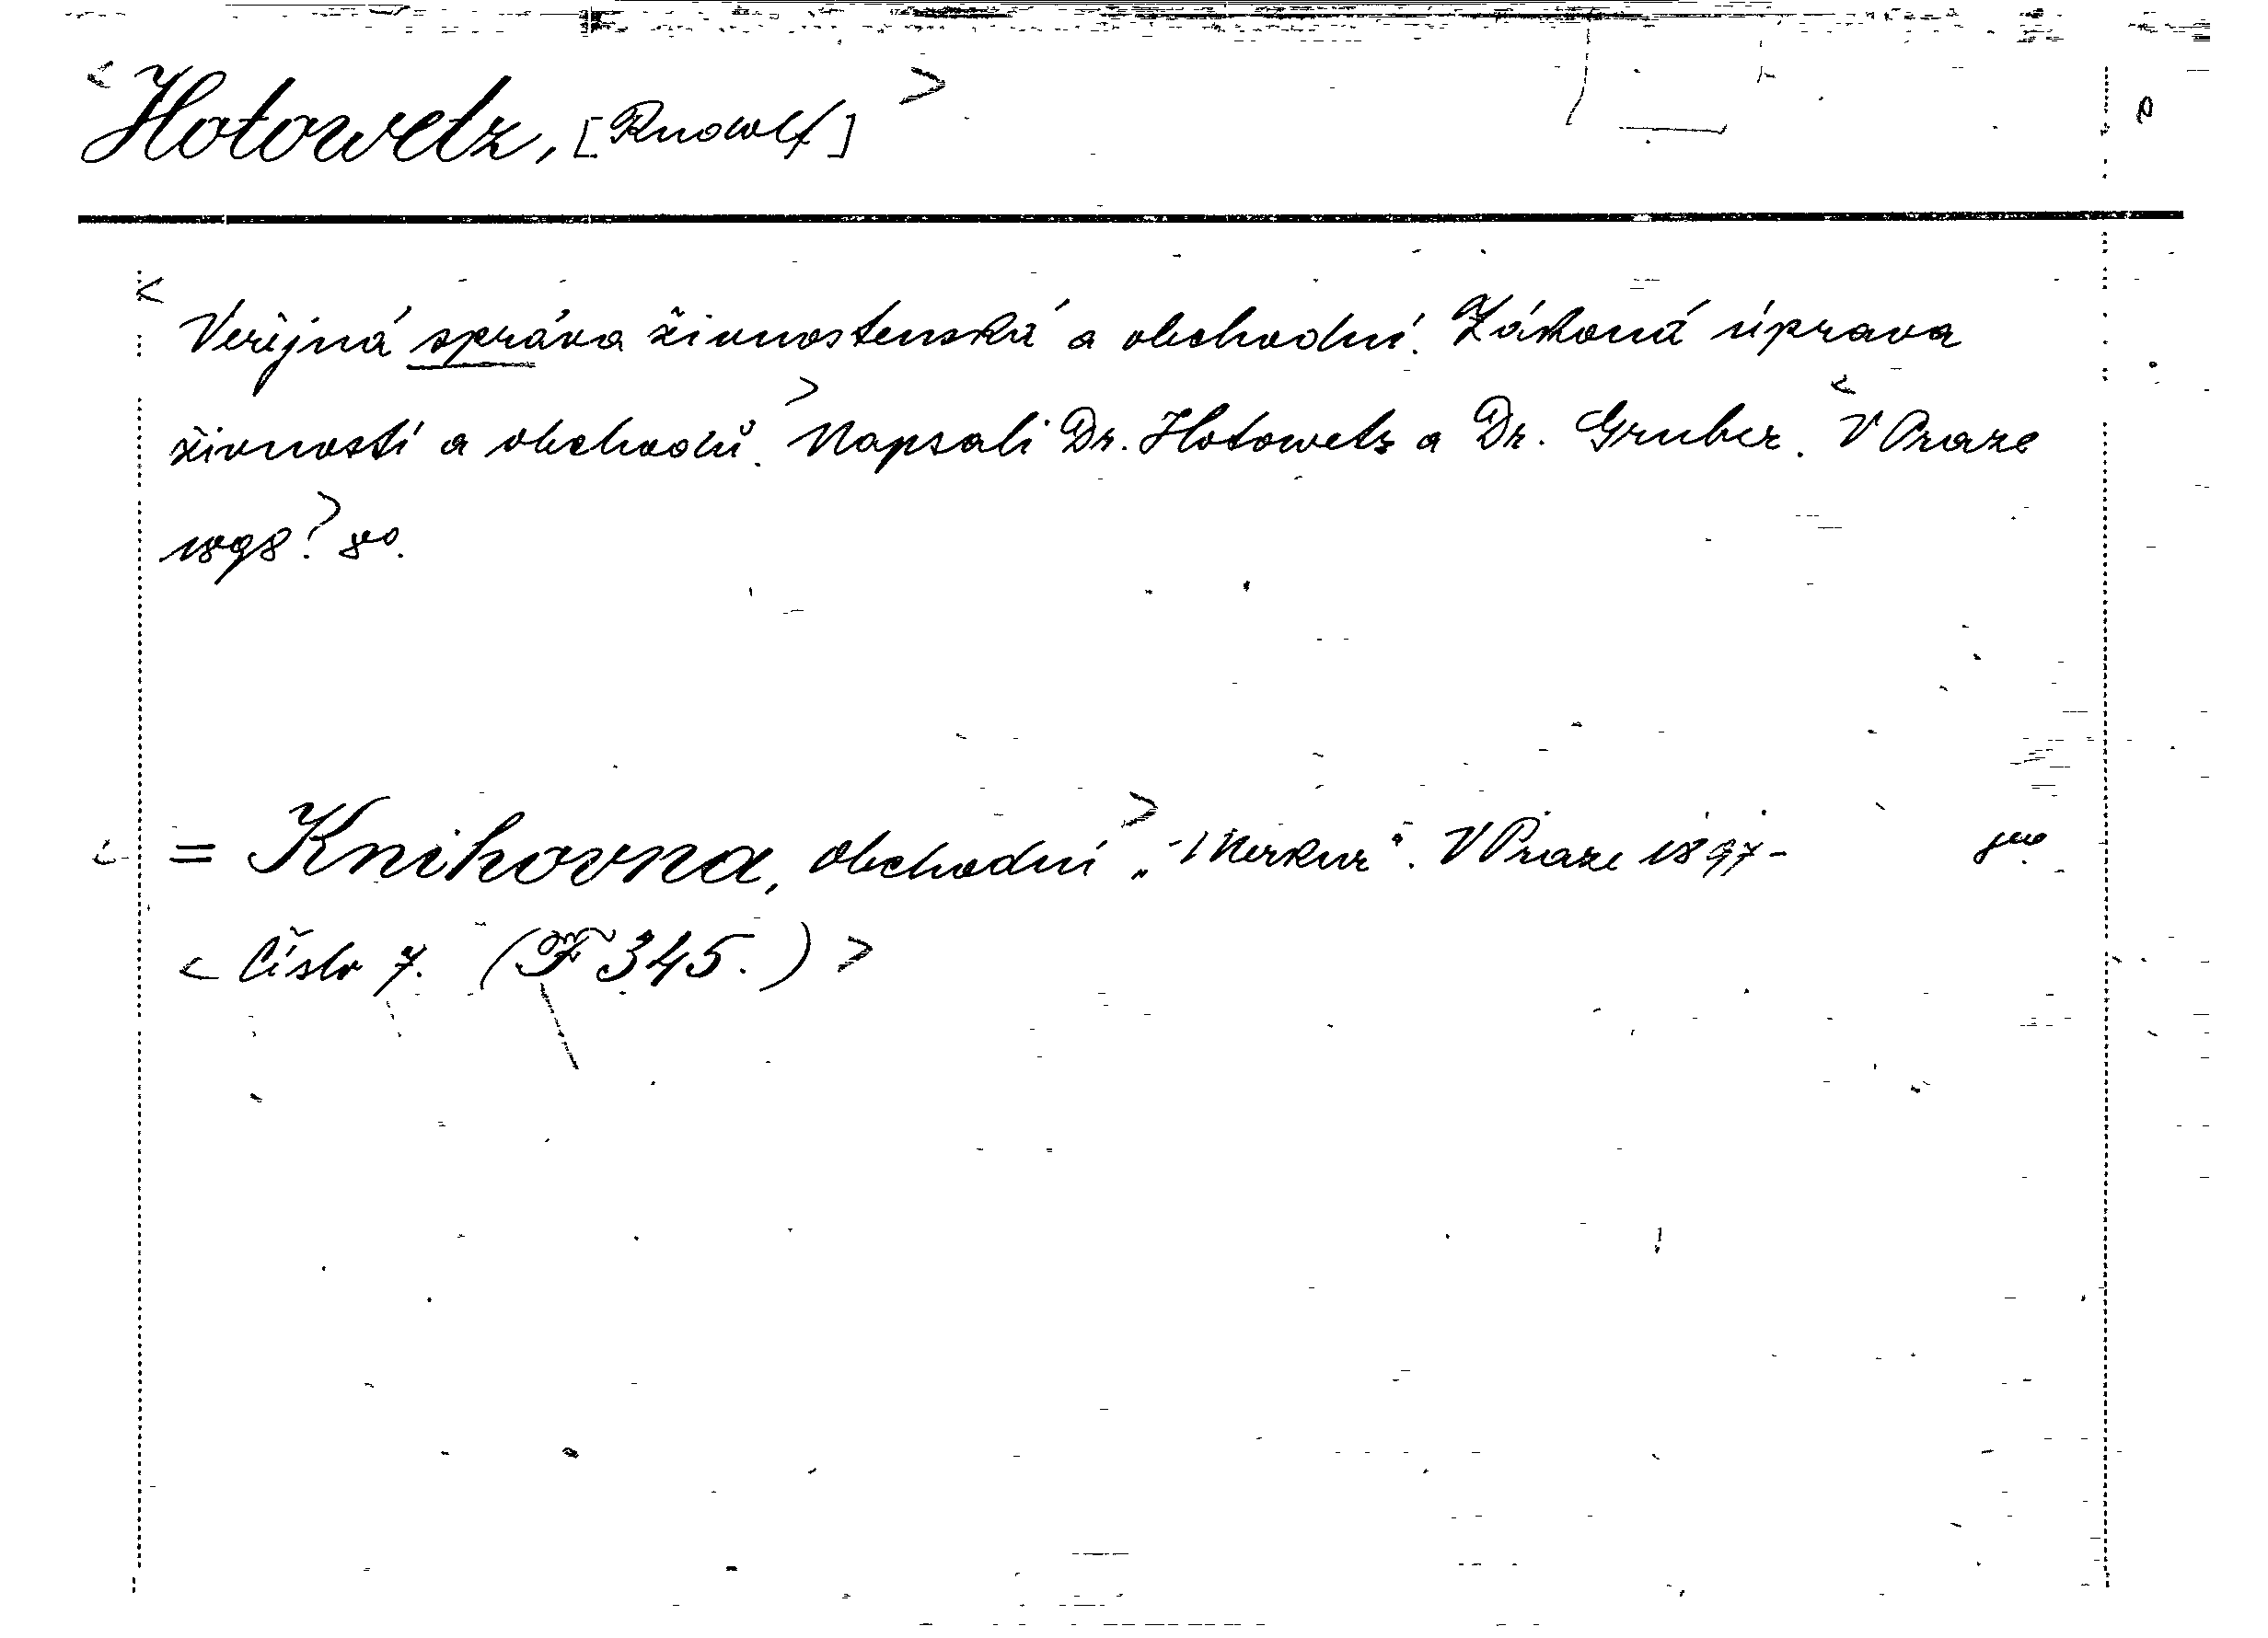 < Hotowetz, [Rudolf] >
< Veřejná správa živnostenská a obchodní. Zákoná úprava
živností a obchodů. > Napsali Dr. Hotowetz a Dr. Gruber. < V Praze
1898. > 8°.
= Knihovna, obchodní > „Merkur“. V Praze 1897-
< Číslo 7. (F 345.) >